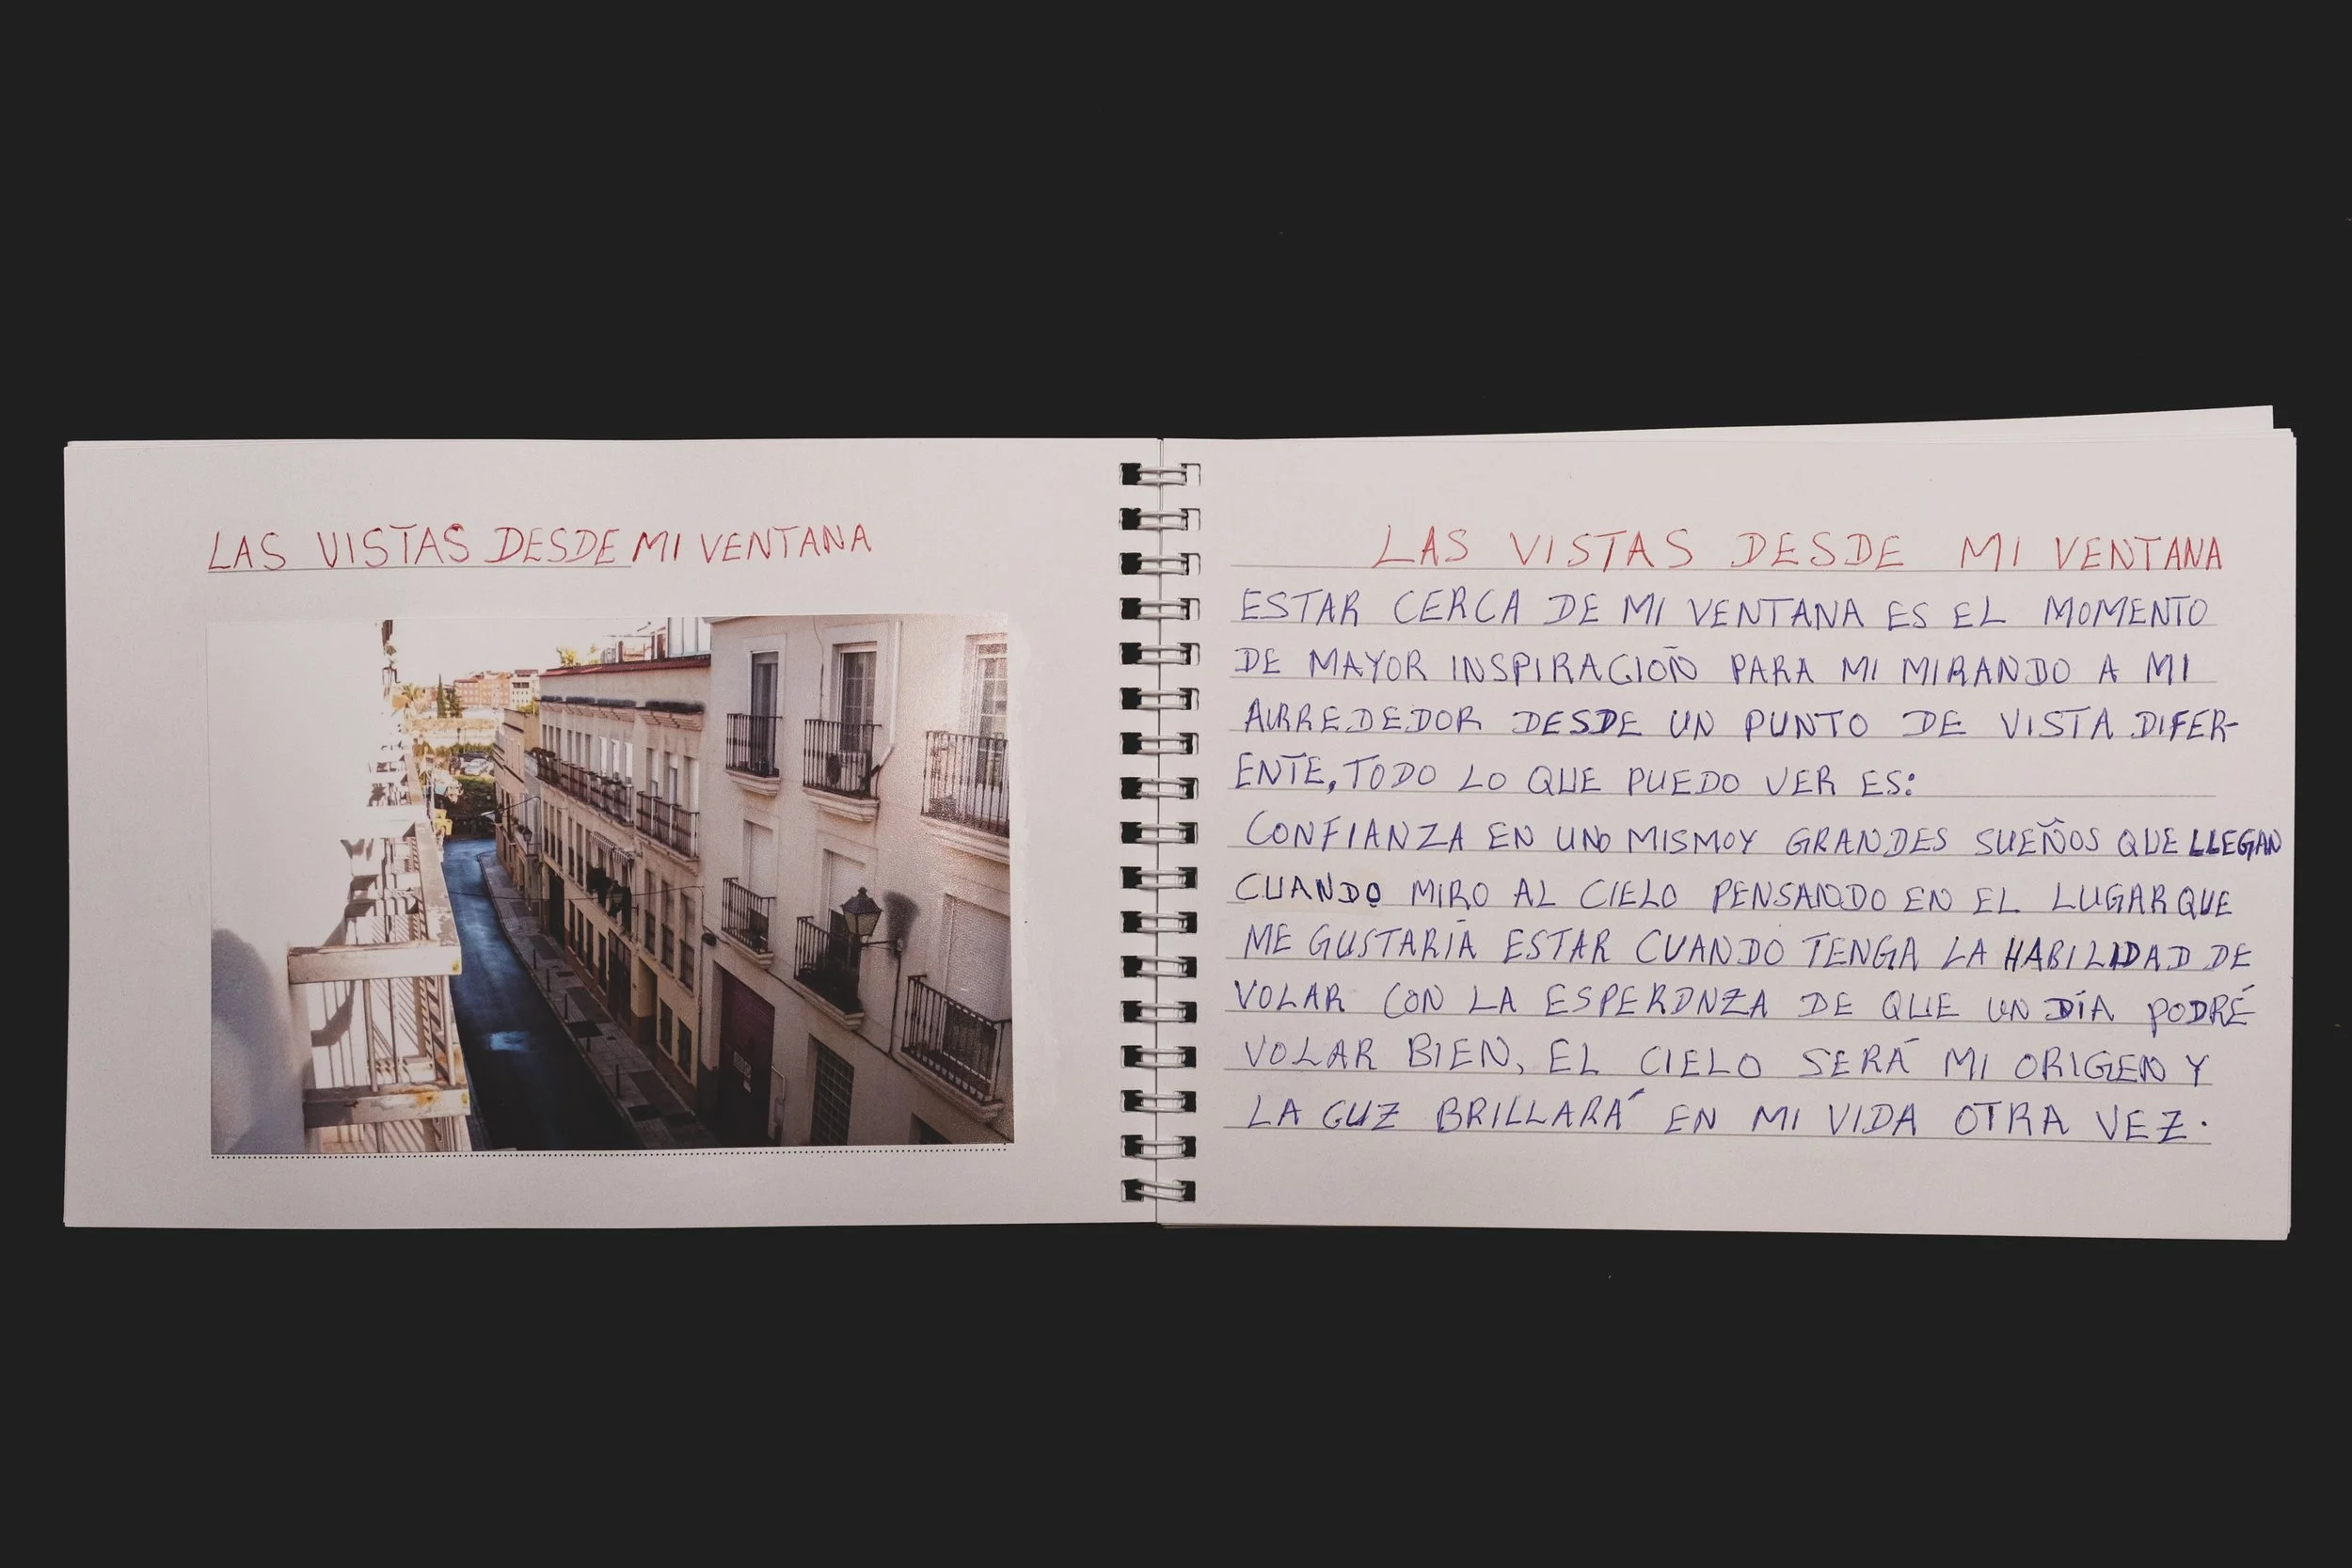 LAS VISTAS DESDE MI VENTANA
LAS VISTAS DESDE MI VENTANA
ESTAR CERCA DE MI VENTANA ES EL MOMENTO
DE MAYOR INSPIRACIÓN PARA MI MIRANDO A MI
ALRREDEDOR DESDE UN PUNTO DE VISTA DIFER-
ENTE, TODO LO QUE PUEDO VER ES:
CONFIANZA EN UNO MISMO Y GRANDES SUEÑOS QUE LLEGAN
CUANDO MIRO AL CIELO PENSANDO EN EL LUGAR QUE
ME GUSTARÍA ESTAR CUANDO TENGA LA HABILIDAD DE
VOLAR CON LA ESPERANZA DE QUE UN DÍA PODRÉ
VOLAR BIEN, EL CIELO SERÁ MI ORIGEN Y
LA GUZ BRILLARÁ EN MI VIDA OTRA VEZ.